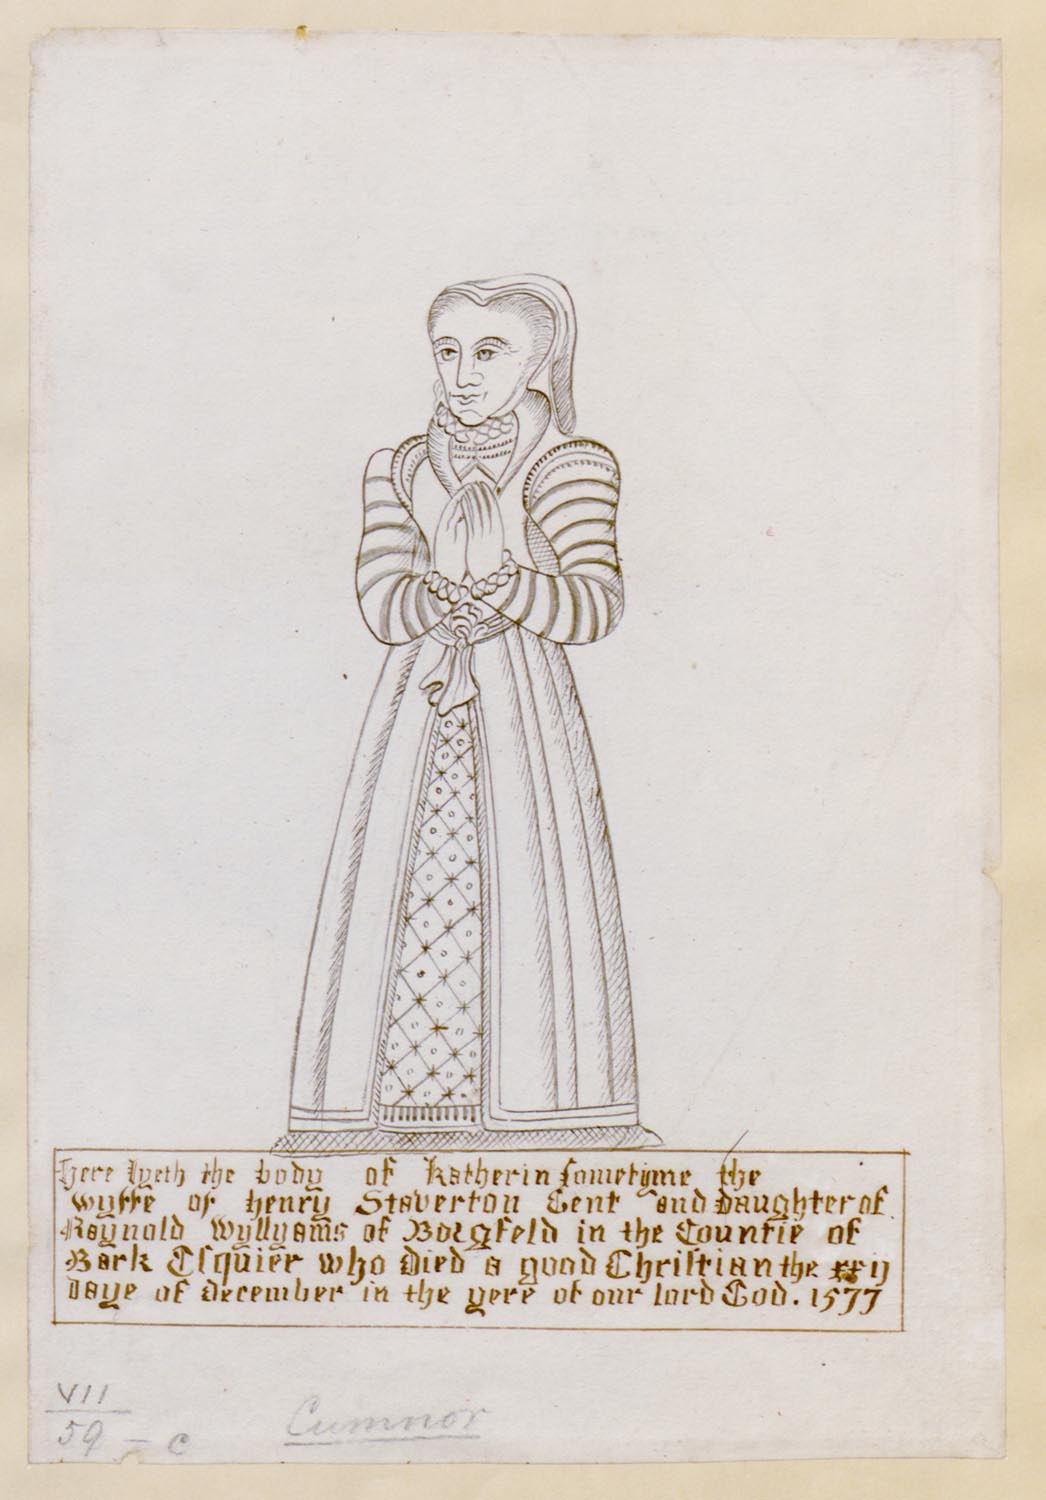 Here lyeth the body of Katherin sometyme the
wyffe of henry Staverton Gent and daughter of
Raynold Wyllyams of Borgfeld in the Countie of
Bark Esquier who died a good Christian the xxij
daye of december in the yere of our lord God. 1577
VII
59 - c
Cumnor